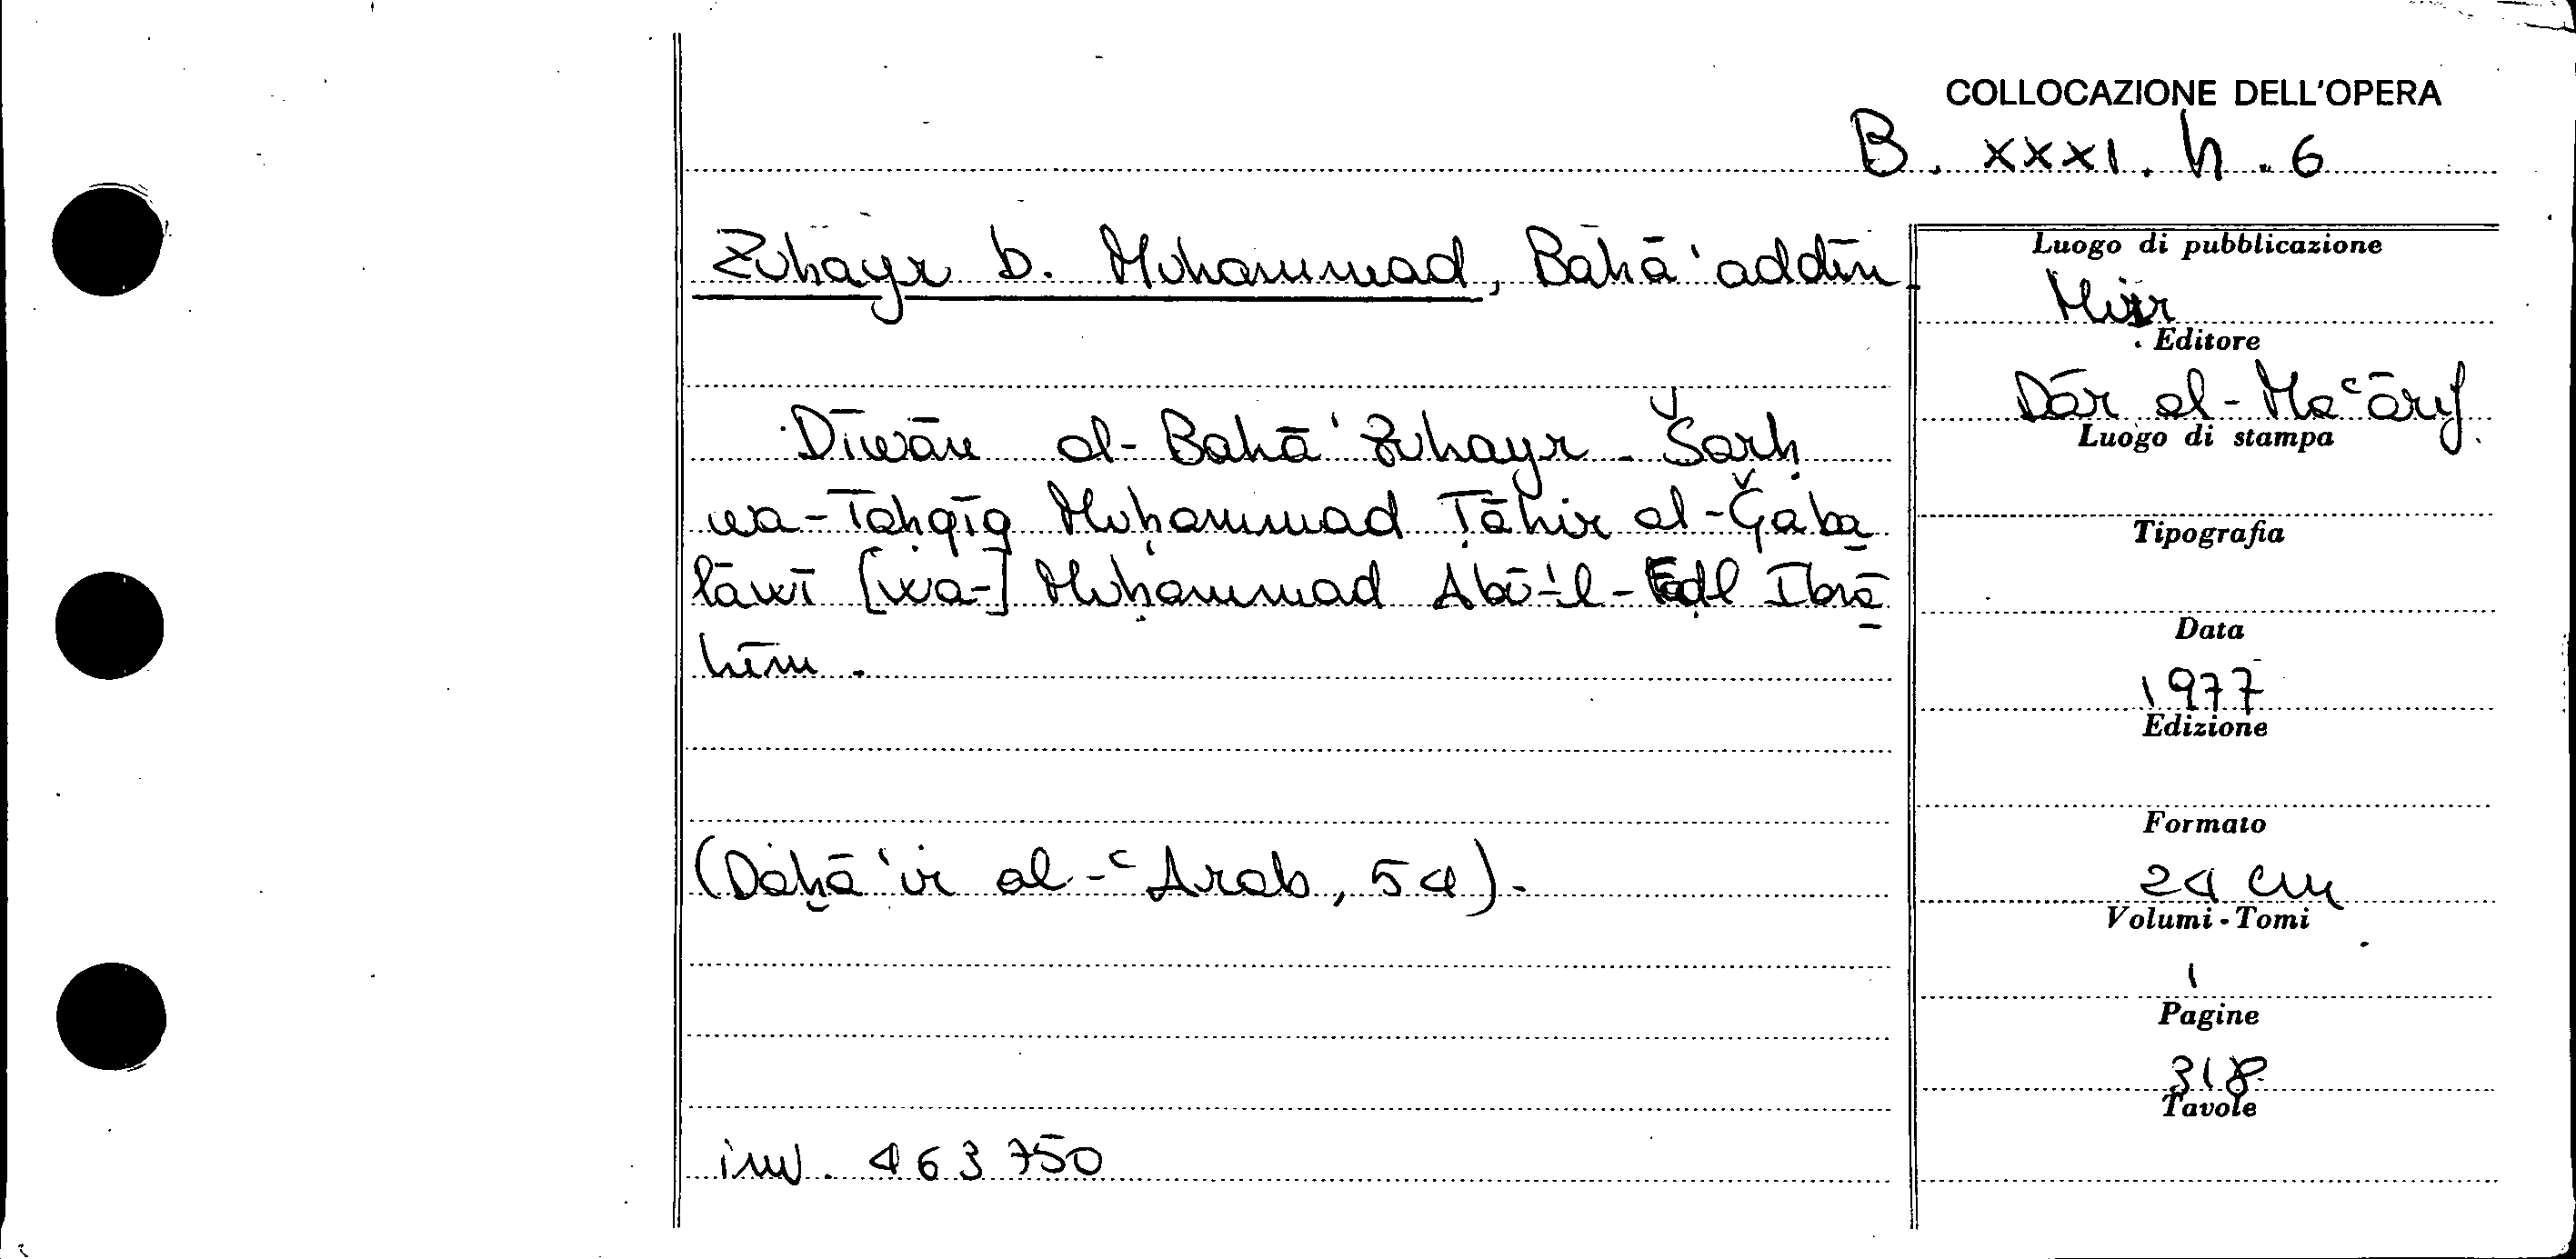 COLLOCAZIONE DELL'OPERA
B. XXXI. h. 6
Zuhayr b. Muhammad, Bahā'addīn
Dīwān al-Bahā' Zuhayr. Šarḥ
wa-Taḥqīq Muḥammad Ṭāhir al-Ǧaba
lāwī [wa-] Muḥammad Abū-'l-Faḍl Ibrā
hīm.
(Ḏaḫā'ir al-ʿArab, 54).
inv. 463750
Luogo di pubblicazione
Miṣr
Editore
Dār al-Maʿārif
Luogo di stampa
Tipografia
Data
1977
Edizione
Formato
24 cm
Volumi - Tomi
1
Pagine
318
Tavole